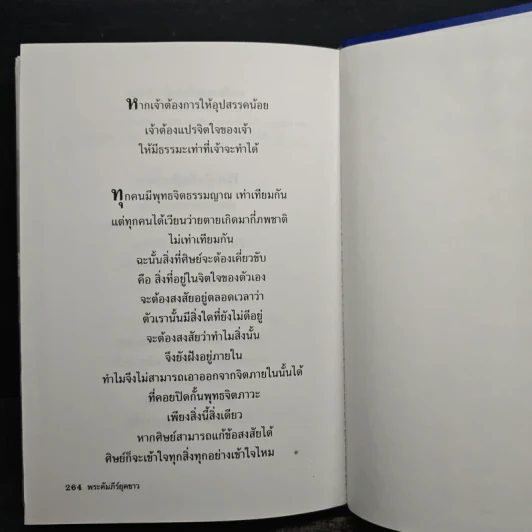 หากเจ้าต้องการให้อุปสรรคน้อย
เจ้าต้องแปรจิตใจของเจ้า
ให้มีธรรมะเท่าที่เจ้าจะทำได้
ทุกคนมีพุทธจิตธรรมญาณ เท่าเทียมกัน
แต่ทุกคนได้เวียนว่ายตายเกิดมากี่ภพชาติ
ไม่เท่าเทียมกัน
ฉะนั้นสิ่งที่ศิษย์จะต้องเคี่ยวขับ
คือ สิ่งที่อยู่ในจิตใจของตัวเอง
จะต้องสงสัยอยู่ตลอดเวลาว่า
ตัวเรานั้นมีสิ่งใดที่ยังไม่ดีอยู่
จะต้องสงสัยว่าทำไมสิ่งนั้น
จึงยังฝังอยู่ภายใน
ทำไมจึงไม่สามารถเอาออกจากจิตภายในนั้นได้
ที่คอยปิดกั้นพุทธจิตภาวะ
เพียงสิ่งนี้สิ่งเดียว
หากศิษย์สามารถแก้ข้อสงสัยได้
ศิษย์ก็จะเข้าใจทุกสิ่งทุกอย่างเข้าใจไหม
264 พระคัมภีร์ยุคขาว